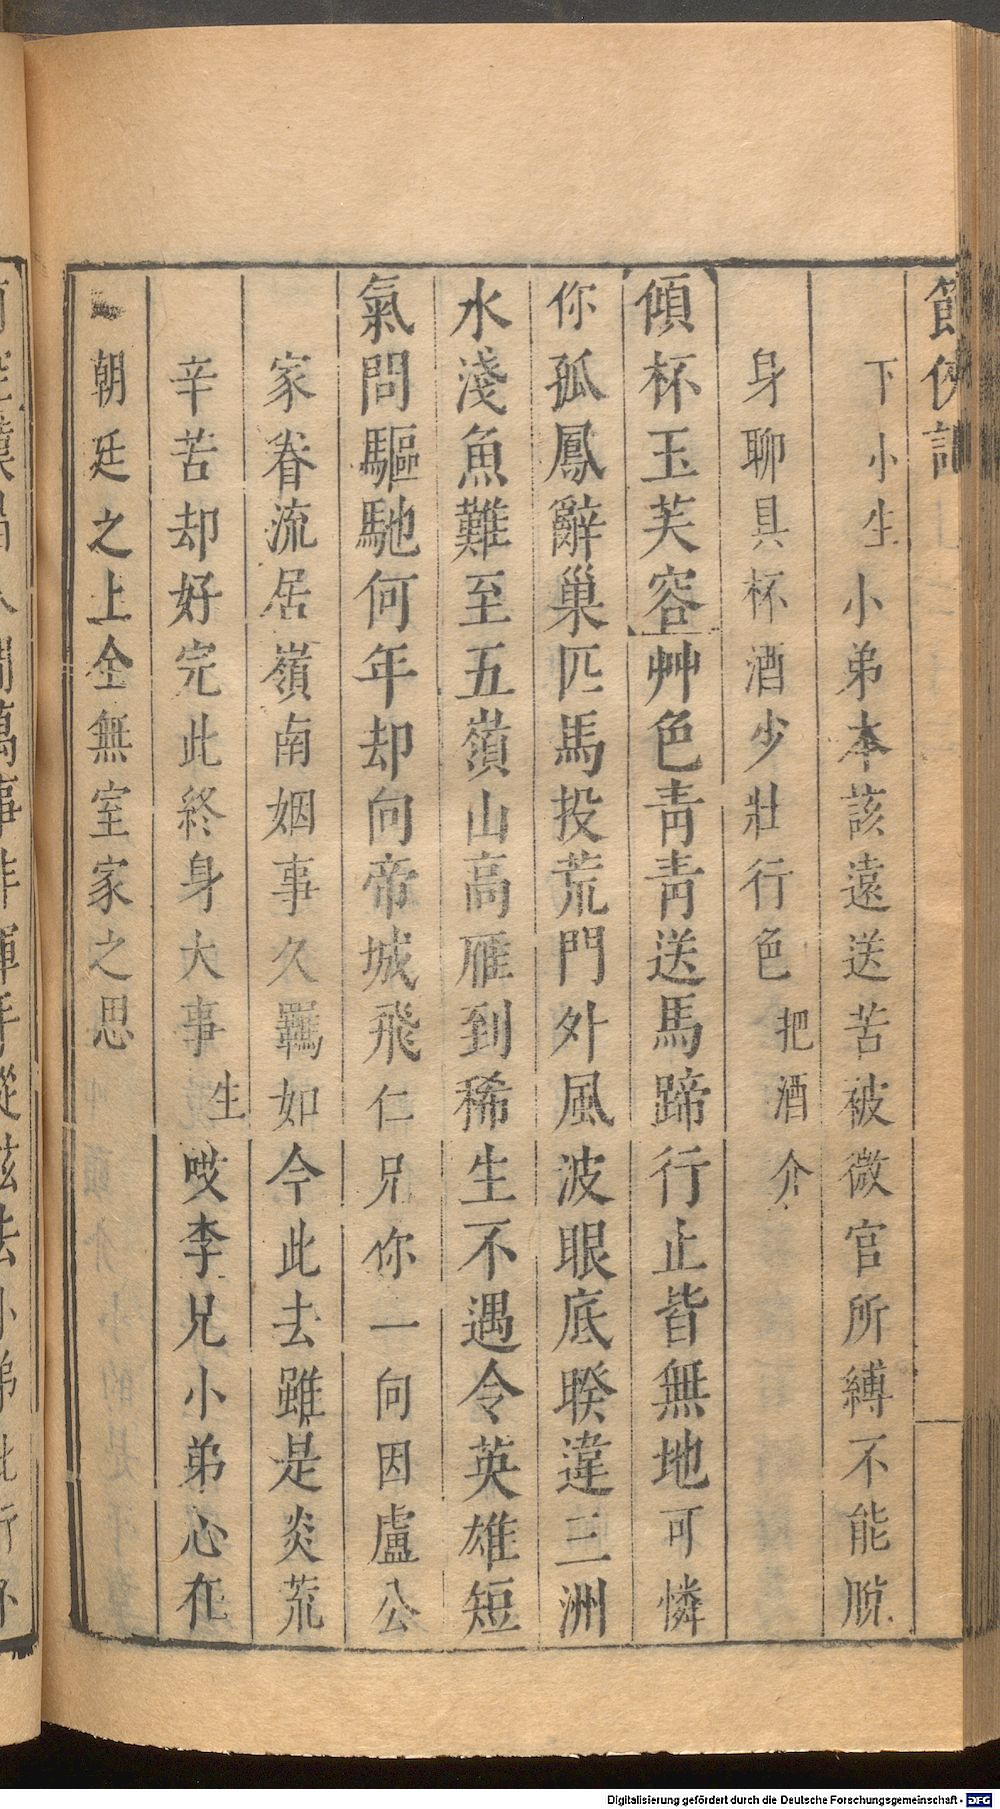 節俠記
下小生小弟本該遠送苦被微官所縛不能脫
身聊具杯酒少壯行色把酒介
傾杯玉芙容艸色靑靑送馬蹄行止皆無地可憐
你孤鳳辭巢匹馬投荒門外風波眼底暌違三洲
水淺魚難至五嶺山高雁到稀生不遇令英雄短
氣問驅馳何年却向帝城飛仁兄你一向因盧公
家眷流居嶺南姻事久羈如今此去雖是炎荒
辛苦却好完此終身大事生哎李兄小弟心在
朝廷之上全無室家之思
Digitalisierung gefördert durch die Deutsche Forschungsgemeinschaft - DFG